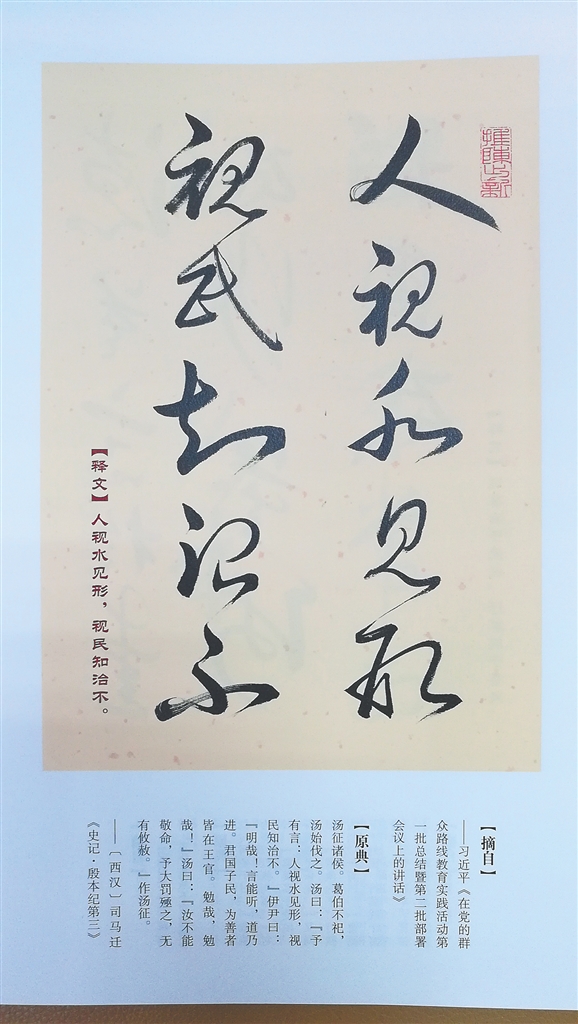 人视水见形
视民知治不
【释文】人视水见形，视民知治不。
【摘自】
——习近平《在党的群
众路线教育实践活动第
一批总结暨第二批部署
会议上的讲话》
【原典】
汤征诸侯。葛伯不祀，
汤始伐之。汤曰：『予
有言：人视水见形，视
民知治不。』伊尹曰：
『明哉！言能听，道乃
进。君国子民，为善者
皆在王官。勉哉，勉
哉！』汤曰：『汝不能
敬命，予大罚殛之，无
有攸赦。』作汤征。
——〔西汉〕司马迁
《史记·殷本纪第三》